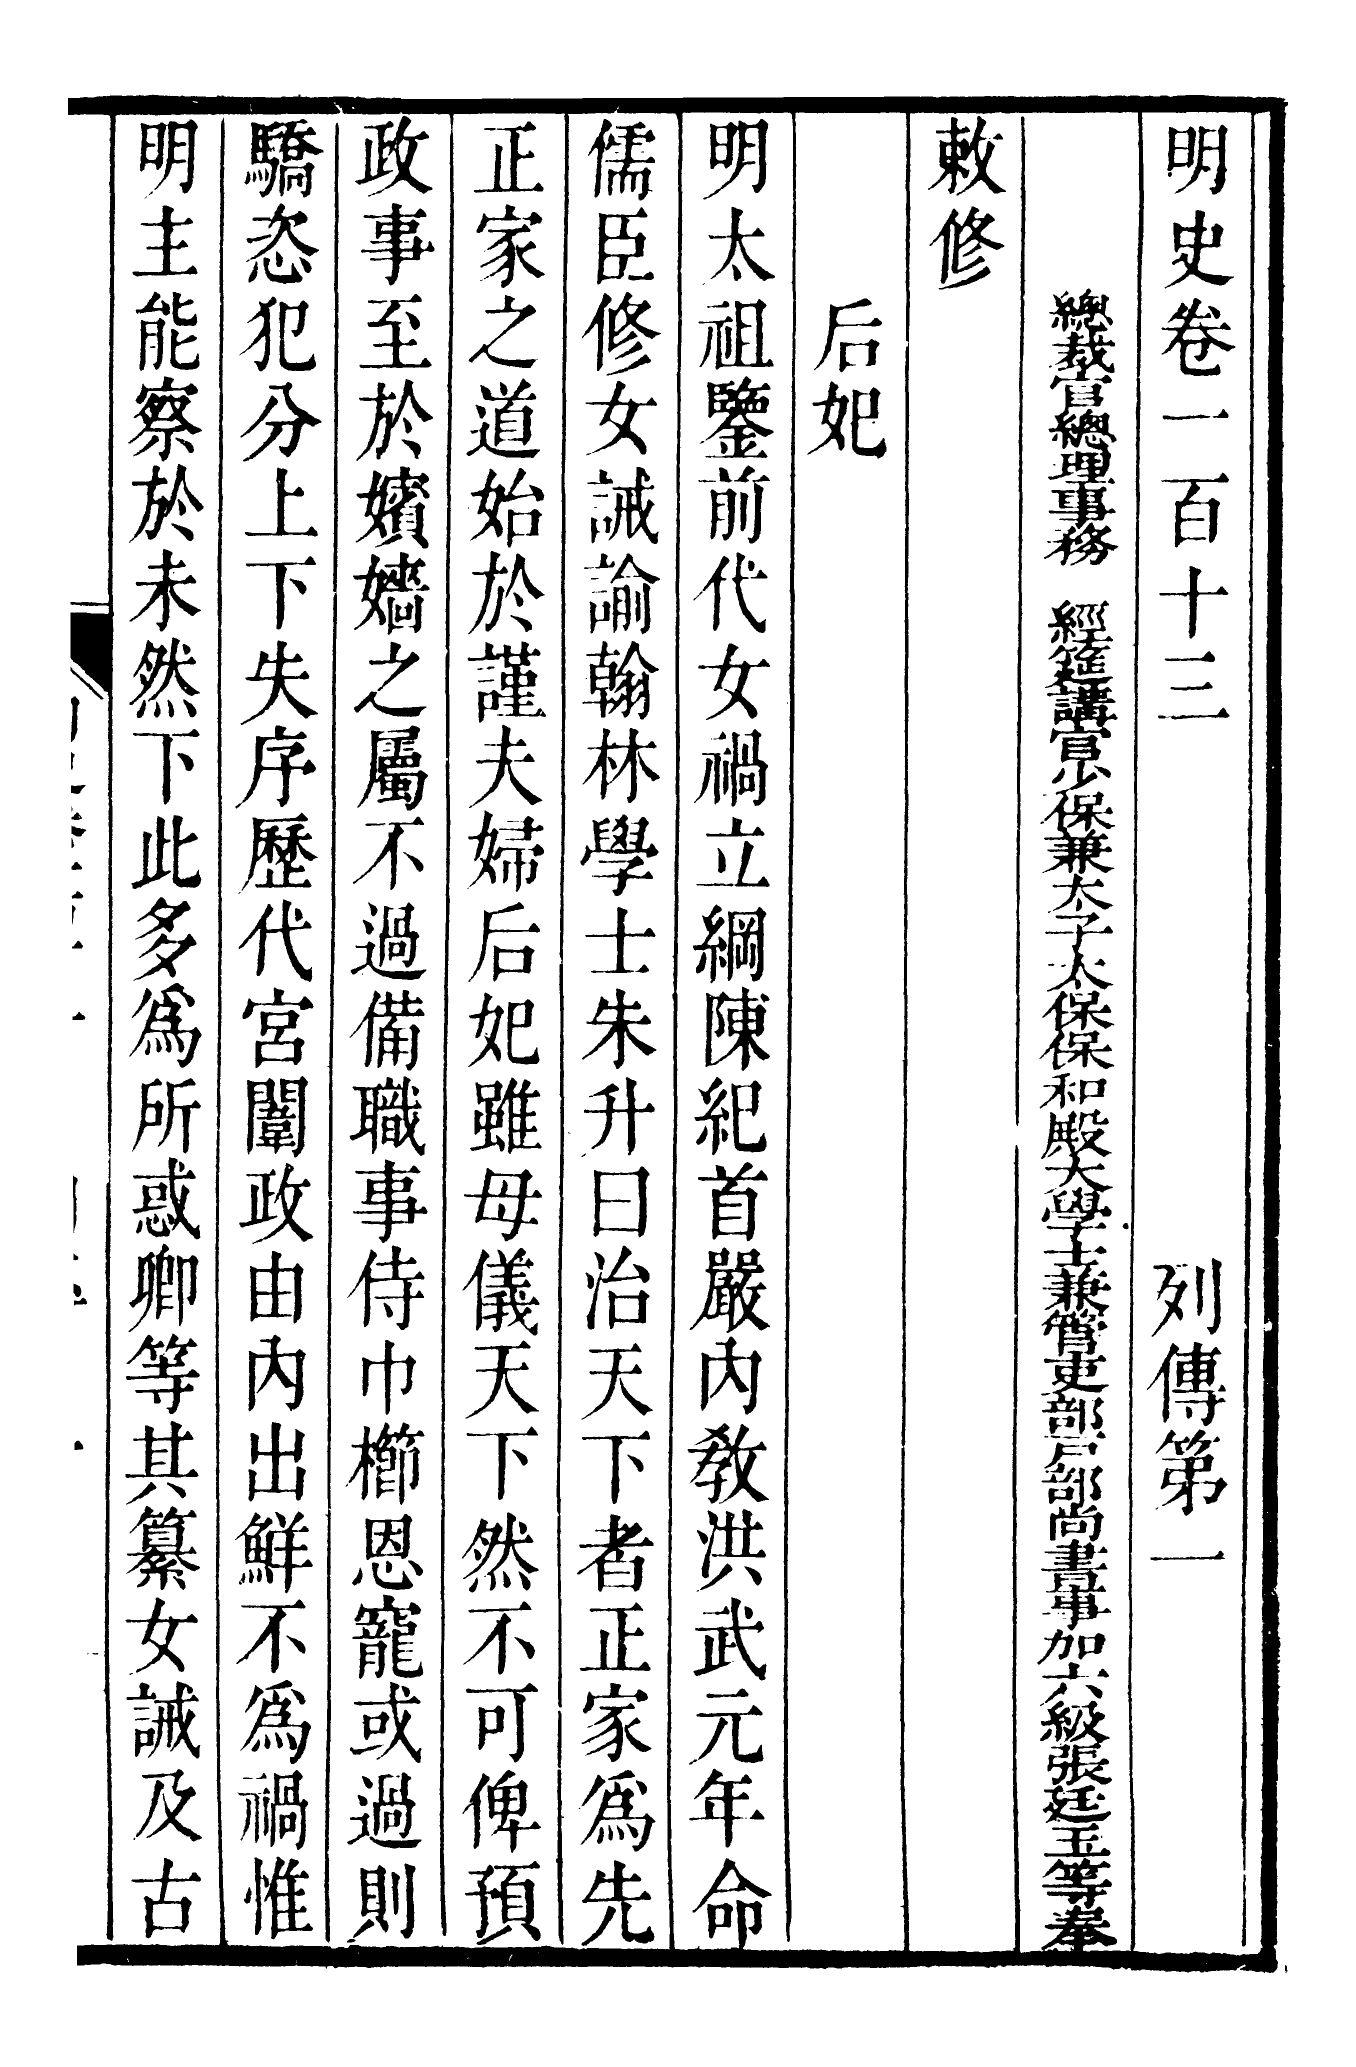 明史卷一百十三　列傳第一
總裁官總理事務　經筵講官少保兼太子太保保和殿大學士兼管吏部戶部尚書事加六級張廷玉等奉
敕修
后妃
明太祖鑒前代女禍立綱陳紀首嚴內教洪武元年命
儒臣修女誡諭翰林學士朱升曰治天下者正家爲先
正家之道始於謹夫婦后妃雖母儀天下然不可俾預
政事至於嬪嬙之屬不過備職事侍巾櫛恩寵或過則
驕恣犯分上下失序歷代宮闈政由內出鮮不爲禍惟
明主能察於未然下此多爲所惑卿等其纂女誡及古